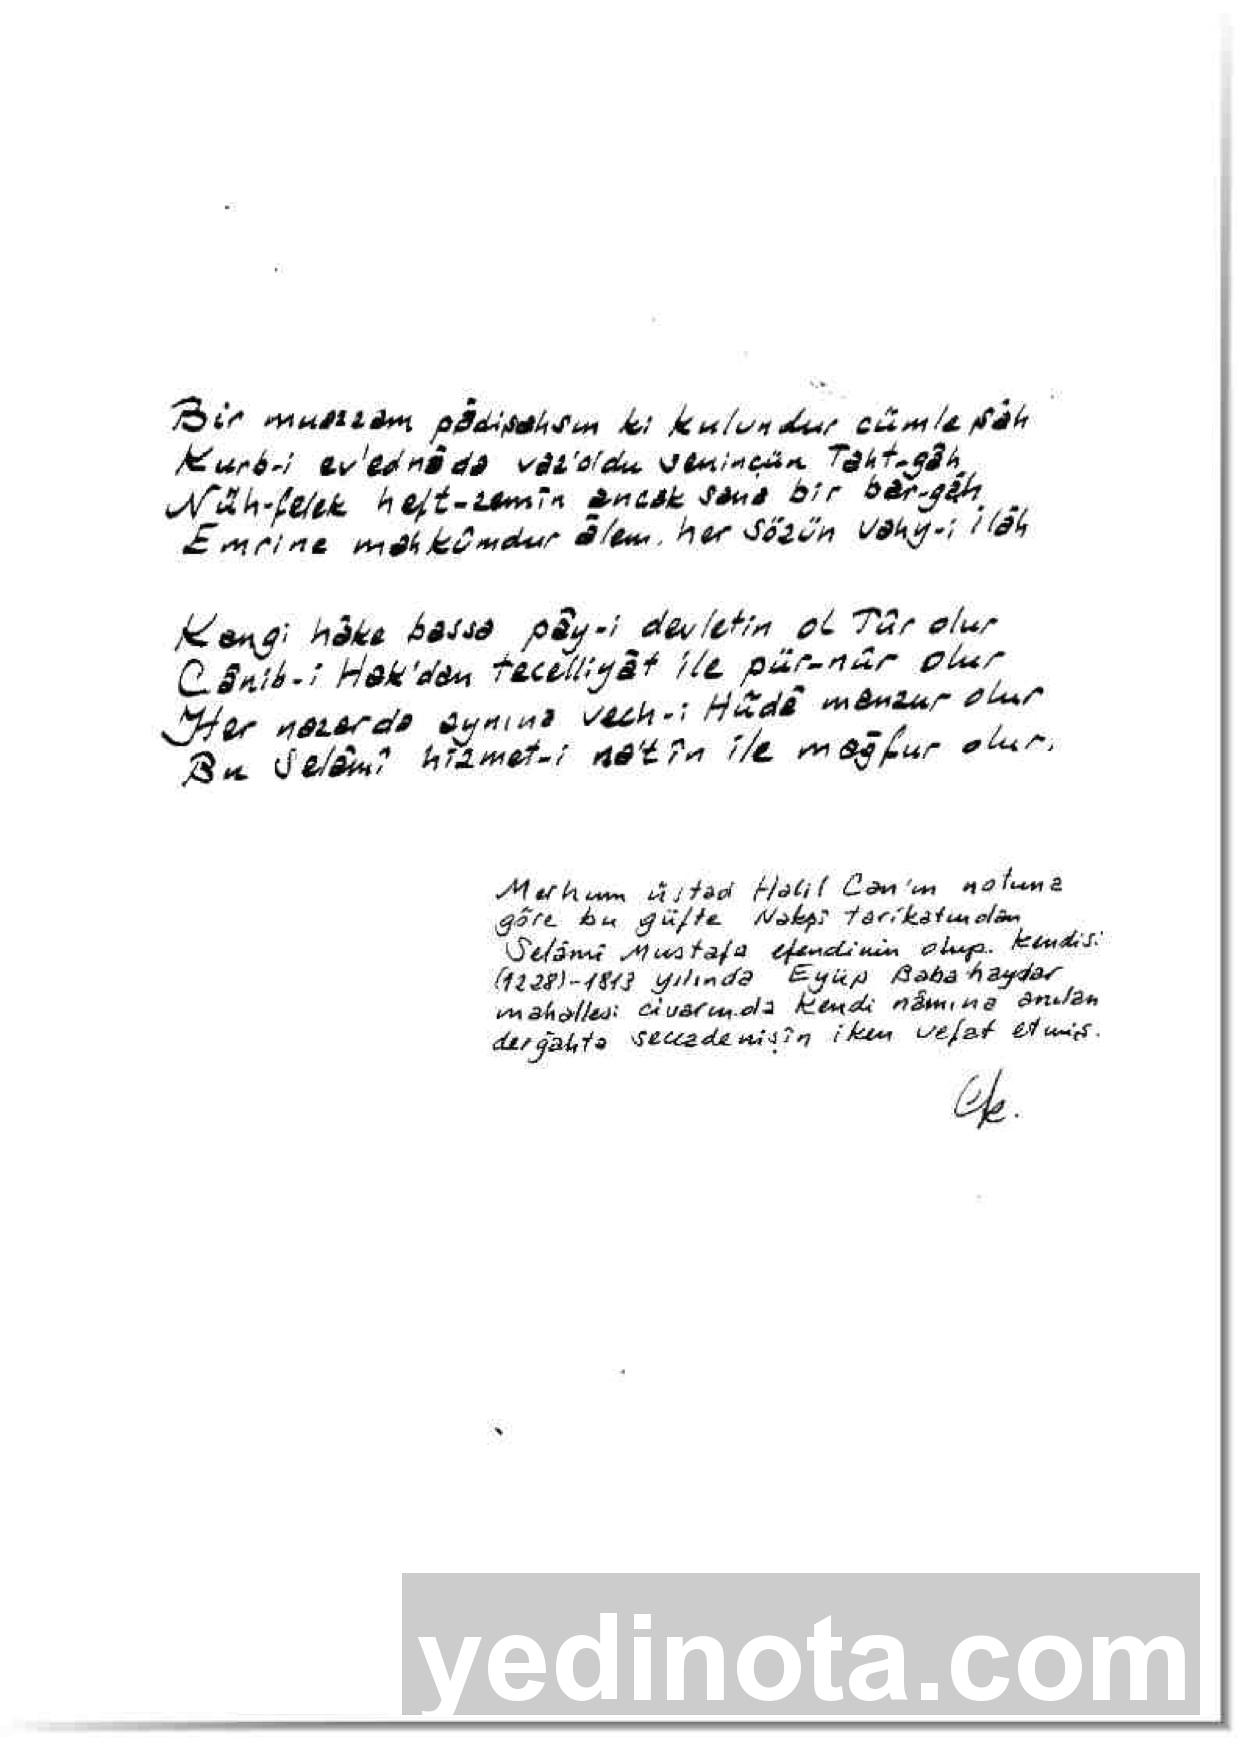 Bir muazzam pâdişahsın ki kulundur cümle şâh
Kurb-i ev'ednâda vaz'oldu seninçün Taht-gâh
Nüh-felek heft-zemîn ancak sana bir bâr-gâh
Emrine mahkûmdur âlem. her sözün vahy-i ilâh
Kangi hâke bassa pây-i devletin ol Tûr olur
Cânib-i Hak'dan tecelliyât ile pür-nûr olur
Her nazarda aynına vech-i Hüdâ manzur olur
Bu Selâmî hizmet-i na'tîn ile mağfur olur.
Merhum üstad Halil Can'ın notuna
göre bu güfte Nakşî tarîkatından
Selâmî Mustafa efendinin olup. Kendisi
(1228)-1813 yılında Eyüp Baba haydar
mahallesi civarında kendi nâmına anılan
dergâhta seccadenişîn iken vefat etmiş.
yedinota.com